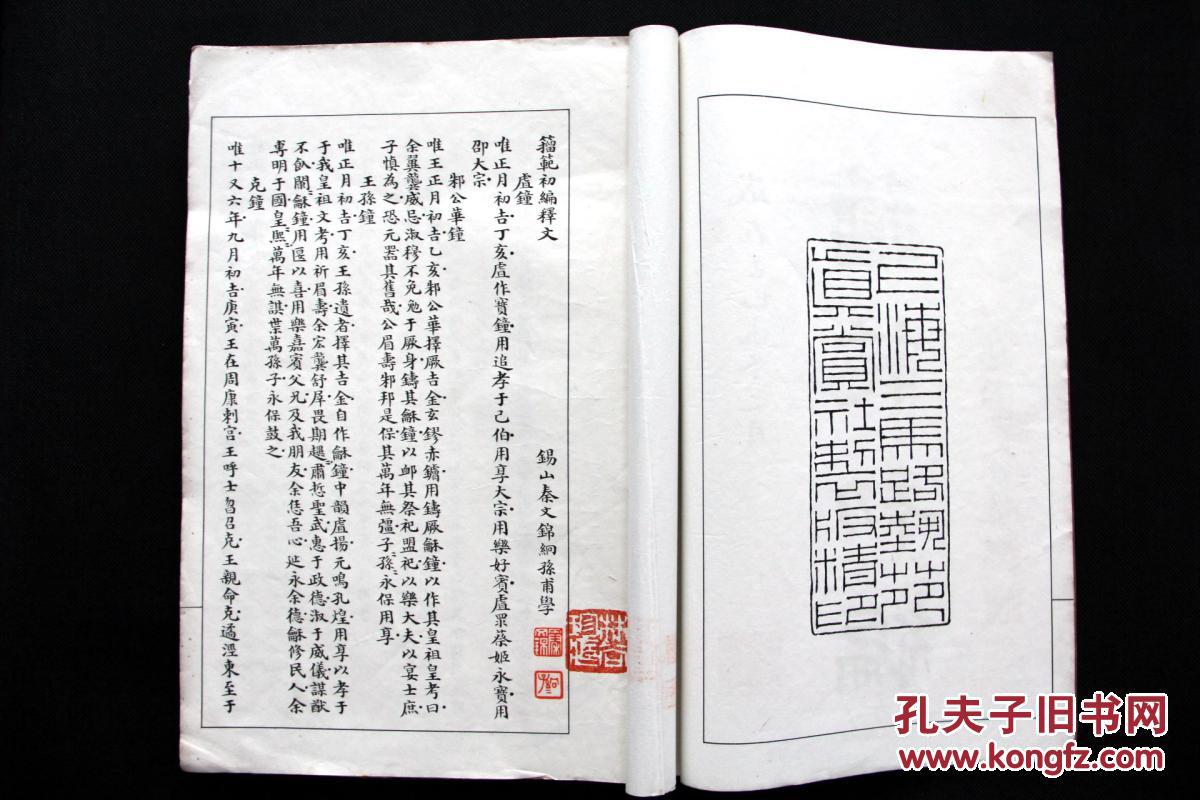 上海三馬路藝苑
真賞社製版精印
籀範初編釋文 錫山秦文錦絅孫甫學
虘鐘
唯正月初吉丁亥虘作寶鐘用追孝于己伯用享大宗用樂好賓虘眔蔡姬永寶用
邵大宗
邾公華鐘
唯王正月初吉乙亥邾公華擇厥吉金玄鏐赤鏞用鑄厥龢鐘以作其皇祖皇考曰
余翼龔威忌淑穆不免勉于厥身鑄其龢鐘以卹其祭祀盟祀以樂大夫以宴士庶
子慎為之恐元器其舊哉公眉壽邾邦是保其萬年無彊子孫永保用享
王孫鐘
唯正月初吉丁亥王孫遺者擇其吉金自作龢鐘中韻虘揚元鳴孔煌用享以孝于
于我皇祖文考用祈眉壽余宏龔舒屖畏期趩肅悊聖武惠于政德淑于威儀謀猷
不飤闌龢鐘用匽以喜用樂嘉賓父兄及我朋友余恁吾心延永余德龢修民人余
尃明于國皇熙萬年無諆枼萬孫子永保鼓之
克鐘
唯十又六年九月初吉庚寅王在周康剌宮王呼士曶召克王親命克遹涇東至于
孔夫子旧书网
www.kongfz.com